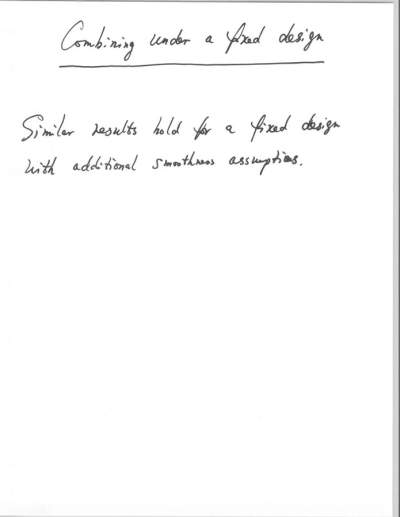 Combining under a fixed design
Similar results hold for a fixed design
with additional smoothness assumptions.